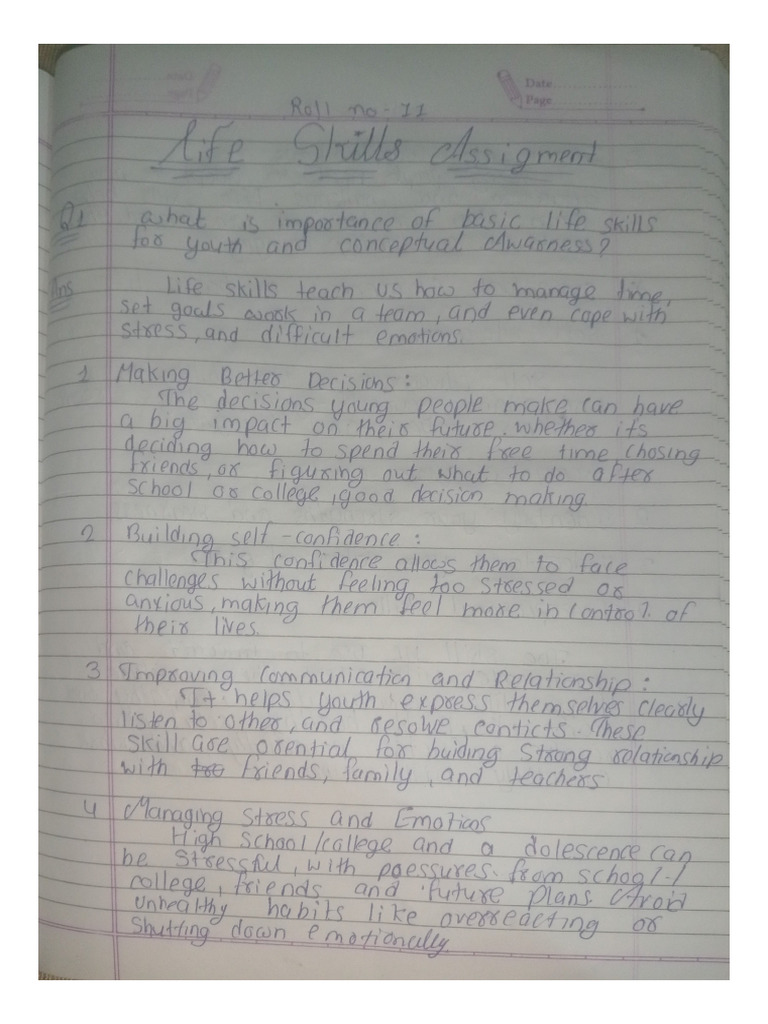 Date
Page
Roll no - 11
Life Skills Assigment
Q1 what is importance of basic life skills
for youth and conceptual Awarness?
Ans Life skills teach us how to manage time,
set goals work in a team, and even cope with
stress, and difficult emotions.
1 Making Better Decisions:
The decisions young people make can have
a big impact on their future. whether its
deciding how to spend their free time chosing
friends, or figuring out what to do after
school or college, good decision making
2 Building self-confidence:
This confidence allows them to face
challenges without feeling too stressed or
anxious, making them feel more in control of
their lives.
3 Improving Communication and Relationship:
It helps youth express themselves clearly
listen to other, and resolve conticts. These
skill are orential for buiding strong relationship
with friends, family, and teachers
4 Managing Stress and Emotions
High School/college and a dolescence can
be stressful, with pressures from school/
college, friends and future plans. Avoid
unhealthy habits like overreacting or
shutting down emotionally.